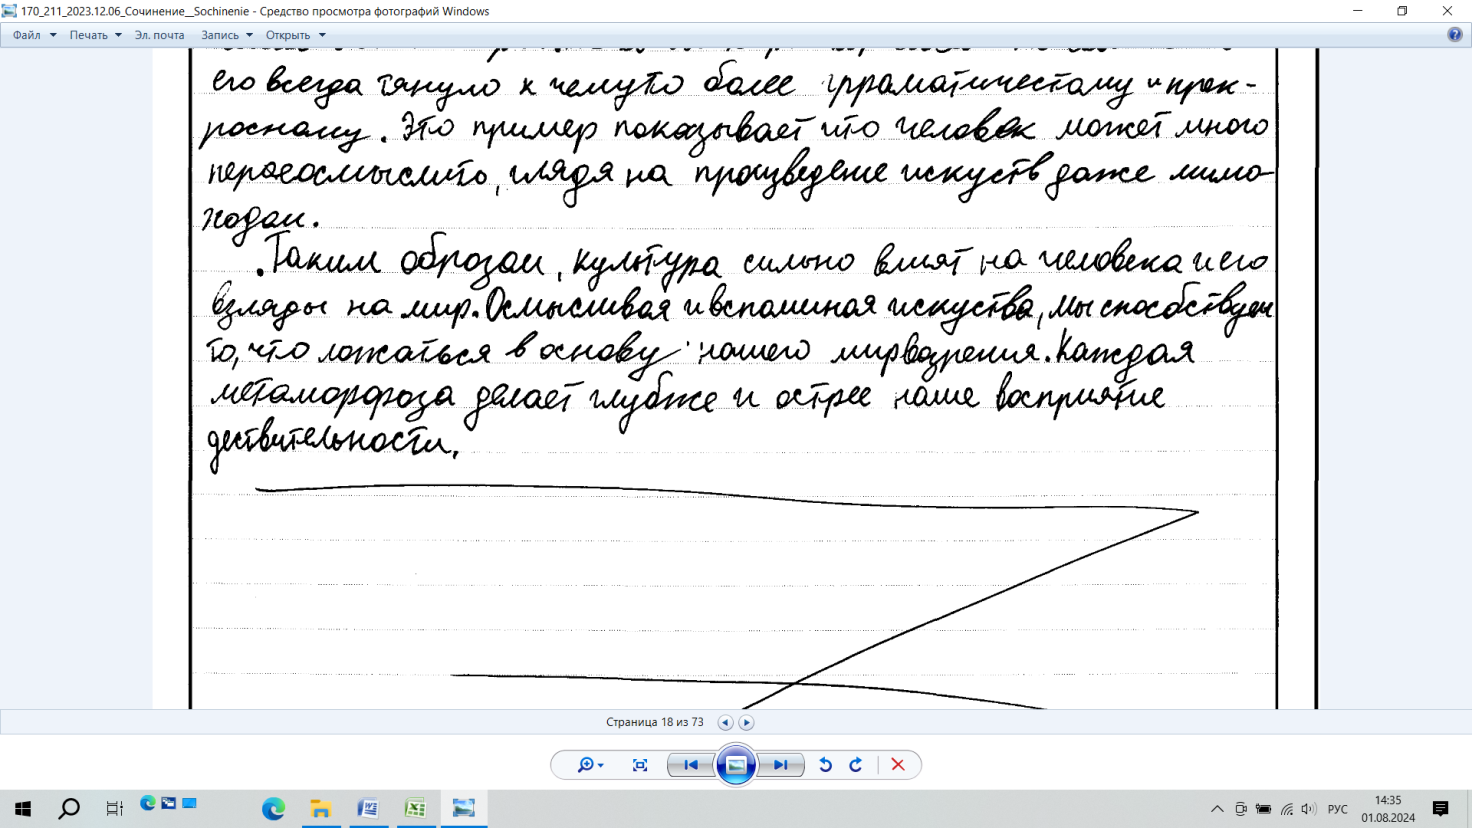 170_211_2023.12.06_Сочинение__Sochinenie - Средство просмотра фотографий Windows
Файл Печать Эл. почта Запись Открыть
его всегда тянуло к чемуто более и прек-
росному. Это пример показывает что человек может много
глядя на произведение искуств даже мимо-
ходом.
Таким образом, культура сильно влият на человека и его
взляды на мир. Осмысливая и вспоминая искуства, мы способствуем
то, что ложаться в основу нашего мирвозрения. Каждая
метаморфоза делает глубже и острее наше восприятие
дествительности.
Страница 18 из 73
РУС
14:35
01.08.2024